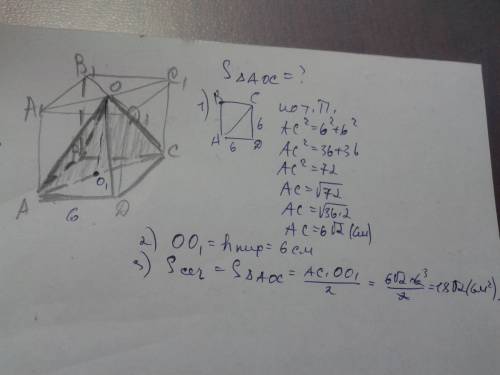 B₁ C₁
O
A₁ D₁
B C
O₁
A 6 D
S△AOC = ?
1) B C
6
A 6 D
по т. П.
AC² = 6² + 6²
AC² = 36 + 36
AC² = 72
AC = √72
AC = √36·2
AC = 6√2 (см)
2) OO₁ = h пир = 6 см
3) Sсеч = S△AOC = AC·OO₁/2 = 6√2·6³/2 = 18√2 (см²)